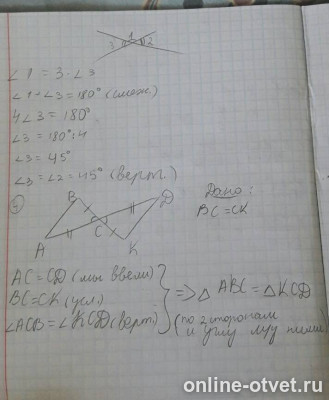 3 1 2
∠1 = 3·∠3
∠1+∠3=180° (смеж.)
4∠3 = 180°
∠3 = 180°:4
∠3 = 45°
∠3 = ∠2 = 45° (верт.)
4
B D
Дано:
BC=CK
C
A K
AC=CD (мы ввели)
BC=CK (усл.)
=> △ABC = △KCD
∠ACB=∠KCD (верт.)
(по 2 сторонам
и углу м/у ними)
online-otvet.ru